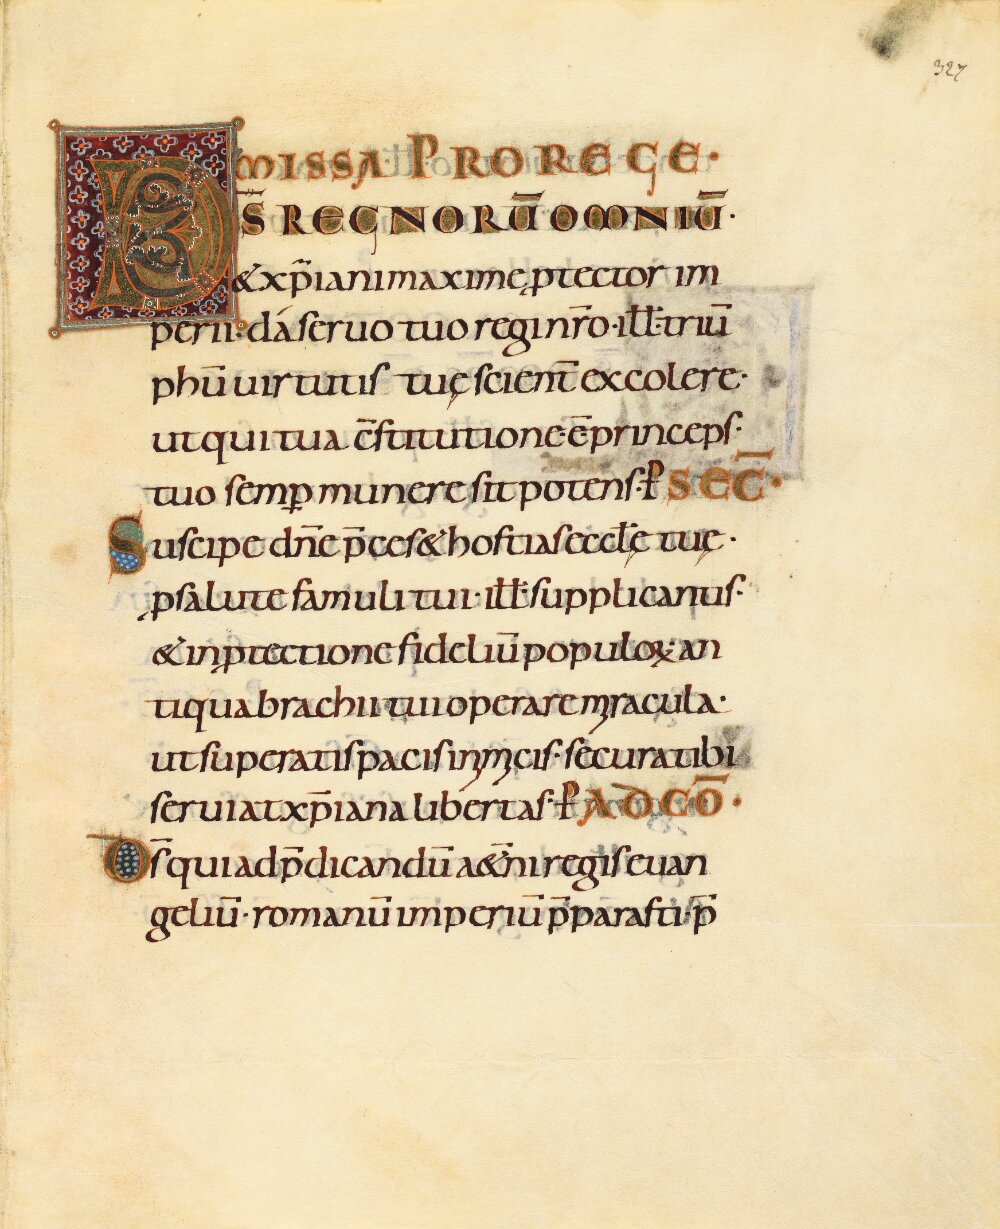 327
MISSA PRO REGE·
DS̄ REGNORŪ OMNIŪ·
& xp̄iani maxime ꝓtector im
perii· dá seruo tuo regi nr̄o· ill̄· triū
phū uirtutis tuę scient̄ excolere·
ut qui tua c̄stitutione· ē princeps·
tuo semꝑ munere sit potens· P SEC̄·
Suscipe dn̄e p̄ces & hostias eccl̄ę tuę·
ꝓ salute famuli tui· ill̄· supplicantis·
& in ꝓtectione fideliū populoꝝ· an
tiqua brachii tui operare miracula·
ut superatis pacis inimicis· secura tibi
seruiat xp̄iana libertas· P AD CŌ·
Ds̄ qui ad p̄dicandū a&n̄i regis euan
geliū· romanū imperiū p̄parasti· p̄